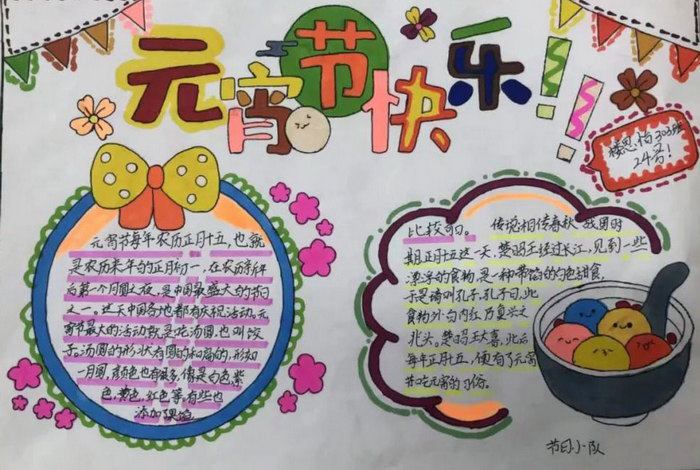 元宵节快乐!!
303班
24号!
元宵节每年农历正月十五,也就
是农历来年的正月初一,在农历新年
后第一个月圆之夜,是中国最盛大的节日
之一。这天中国各地都有庆祝活动。元
宵节最大的活动就是吃汤圆,也叫饺
子。汤圆的形状有圆的和扁的,形如
一月圆,颜色也有很多,像是白色,紫
色,黄色,红色等,有些也
添加了果馅
传说相传春秋战国时
期正月十五这一天,楚昭王经过长江,见到一些
漂浮的食物,是一种带馅的白色甜食,
于是请叫孔子,孔子曰,此
食物外白内红乃复兴之
兆头。楚昭王大喜,此后
每年正月十五,便有了元宵
节吃元宵的习俗。
节日小队